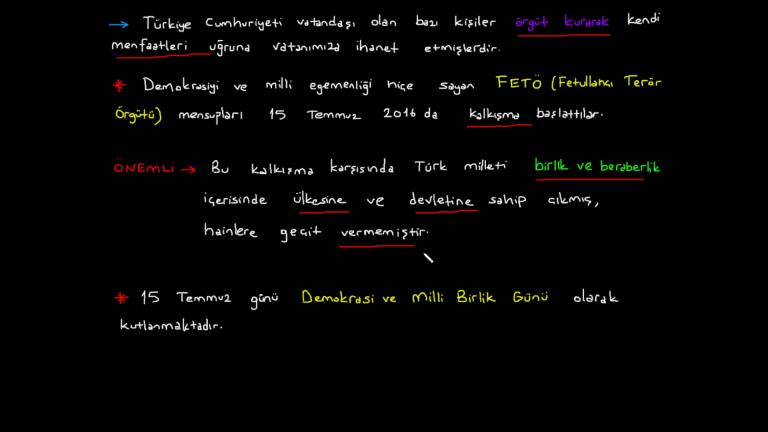 → Türkiye Cumhuriyeti vatandaşı olan bazı kişiler örgüt kurarak kendi
menfaatleri uğruna vatanımıza ihanet etmişlerdir.
* Demokrasiyi ve milli egemenliği hiçe sayan FETÖ (Fetullahçı Terör
Örgütü) mensupları 15 Temmuz 2016 da kalkışma başlattılar.
ÖNEMLİ → Bu kalkışma karşısında Türk milleti birlik ve beraberlik
içerisinde ülkesine ve devletine sahip çıkmış,
hainlere geçit vermemiştir.
* 15 Temmuz günü Demokrasi ve Milli Birlik Günü olarak
kutlanmaktadır.